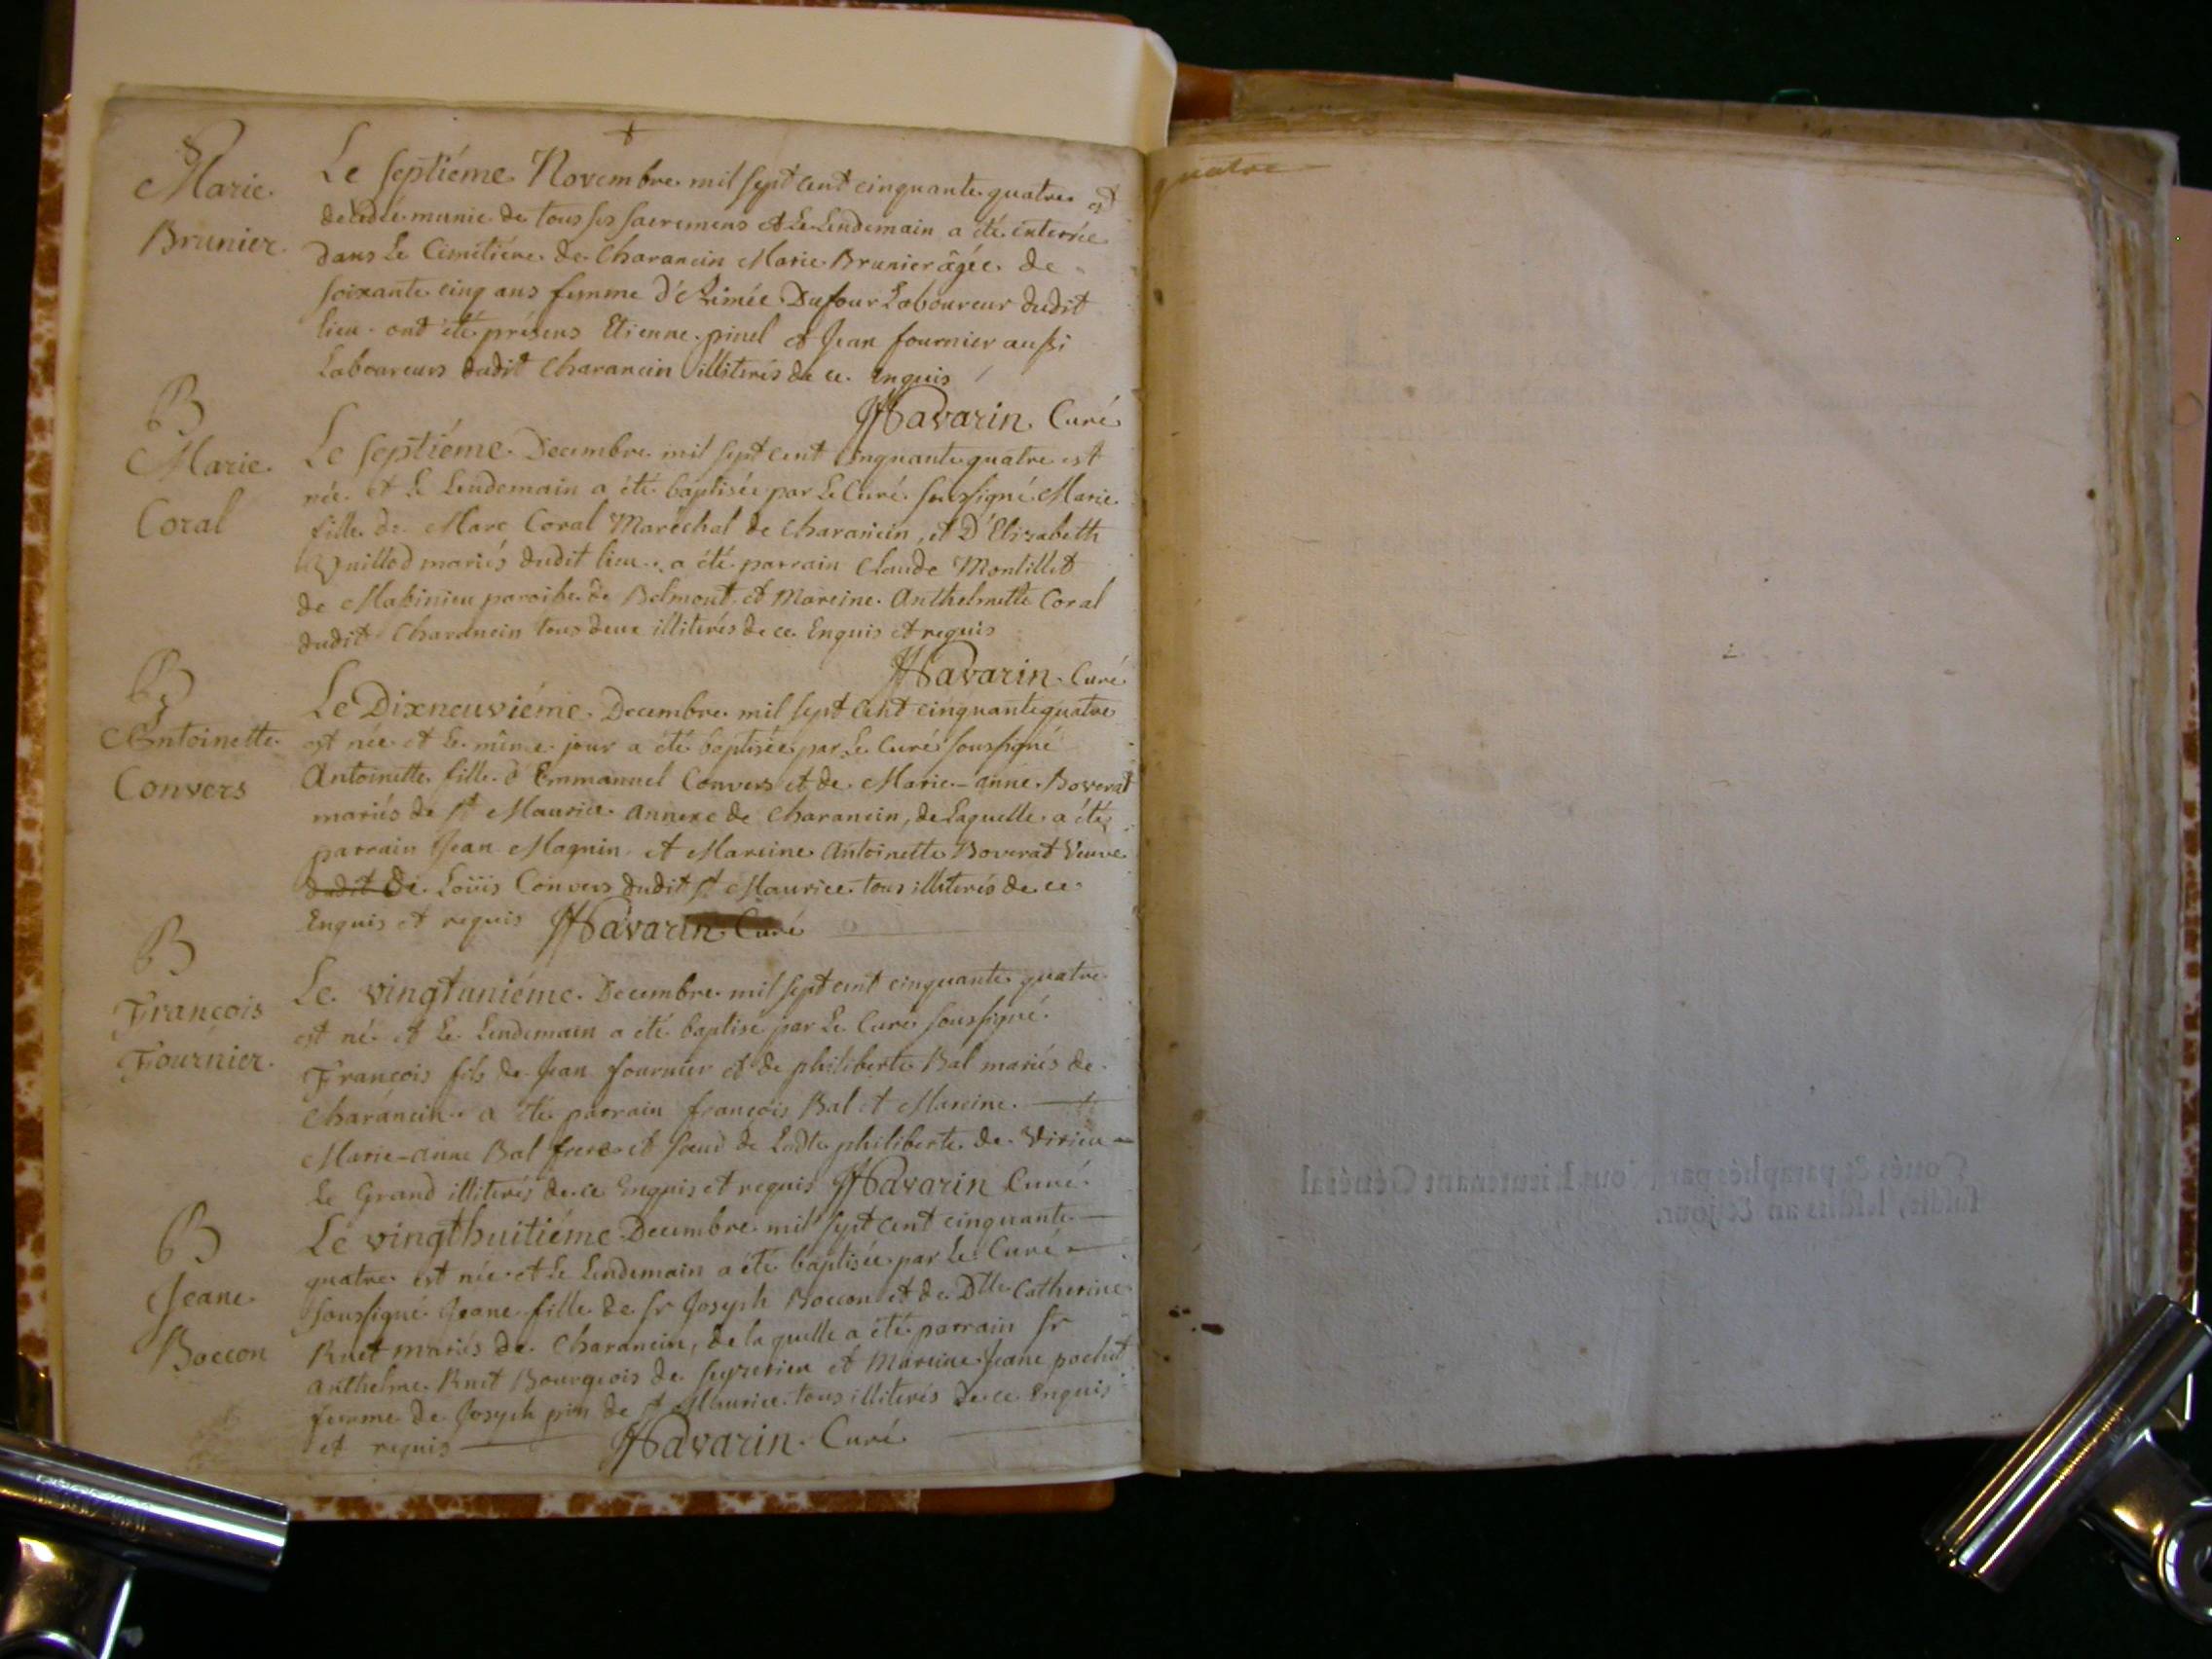 +
S
Marie
Brunier
Le septiéme Novembre mil sept cent cinquante quatre est
decedée munie de tous ses sacremens et Le Lendemain a été enterrée
dans Le Cimetiére de Charancin Marie Brunier âgée de
soixante cinq ans femme d'Aimée Dufour Laboureur dudit
lieu. ont été présens Etienne pinel et Jean fournier aussi
Laboureurs dudit Charancin illiterés de ce enquis
Havarin Curé
B
Marie
Coral
Le septiéme Decembre mil sept cent cinquante quatre est
née et le Lendemain a été baptisée par Le Curé soussigné Marie
fille de Marc Coral Maréchal de Charancin, et D'Elizabeth
Quillod mariés dudit lieu. a été parrain Claude Montillet
de Massinieu paroisse de Belmont et Mareine Anthelmette Coral
dudit Charancin tous deux illiterés de ce Enquis et requis
Havarin Curé
B
Antoinette
Convers
Le Dixneuviéme Decembre mil sept cent cinquante quatre
est née et le même jour a été baptisée par Le Curé soussigné
Antoinette fille d'Emmanuel Convers et de Marie-anne Boverat
mariés de St Maurice annexe de Charancin, de Laquelle a été
parrain Jean Magnin et Mareine Antoinette Boverat Veuve
dudit de Loüis Convers dudit St Maurice tous illiterés de ce
Enquis et requis Havarin Curé
B
François
Fournier
Le vingtuniéme Decembre mil sept cent cinquante quatre
est né et Le Lendemain a été baptisé par Le Curé soussigné
François fils de Jean fournier et de philiberte Bal mariés de
Charancin. a été parrain françois Bal et Mareine
Marie-anne Bal frere et soeur de Ladte philiberte de Virieu
Le Grand illiterés de ce Enquis et requis Havarin Curé
B
Jeane
Boccon
Le vingthuitiéme Decembre mil sept cent cinquante
quatre est née et Le Lendemain a été baptisée par Le Curé
soussigné Jeane fille de sr Joseph Boccon et de Dlle Catherine
Ruet mariés de Charancin, de laquelle a été parrain sr
Anthelme Ruet Bourgeois de seyzerieu et Mareine Jeane pochet
femme de Joseph pin de St Maurice tous illiterés de ce Enquis
et requis Havarin Curé
quatre